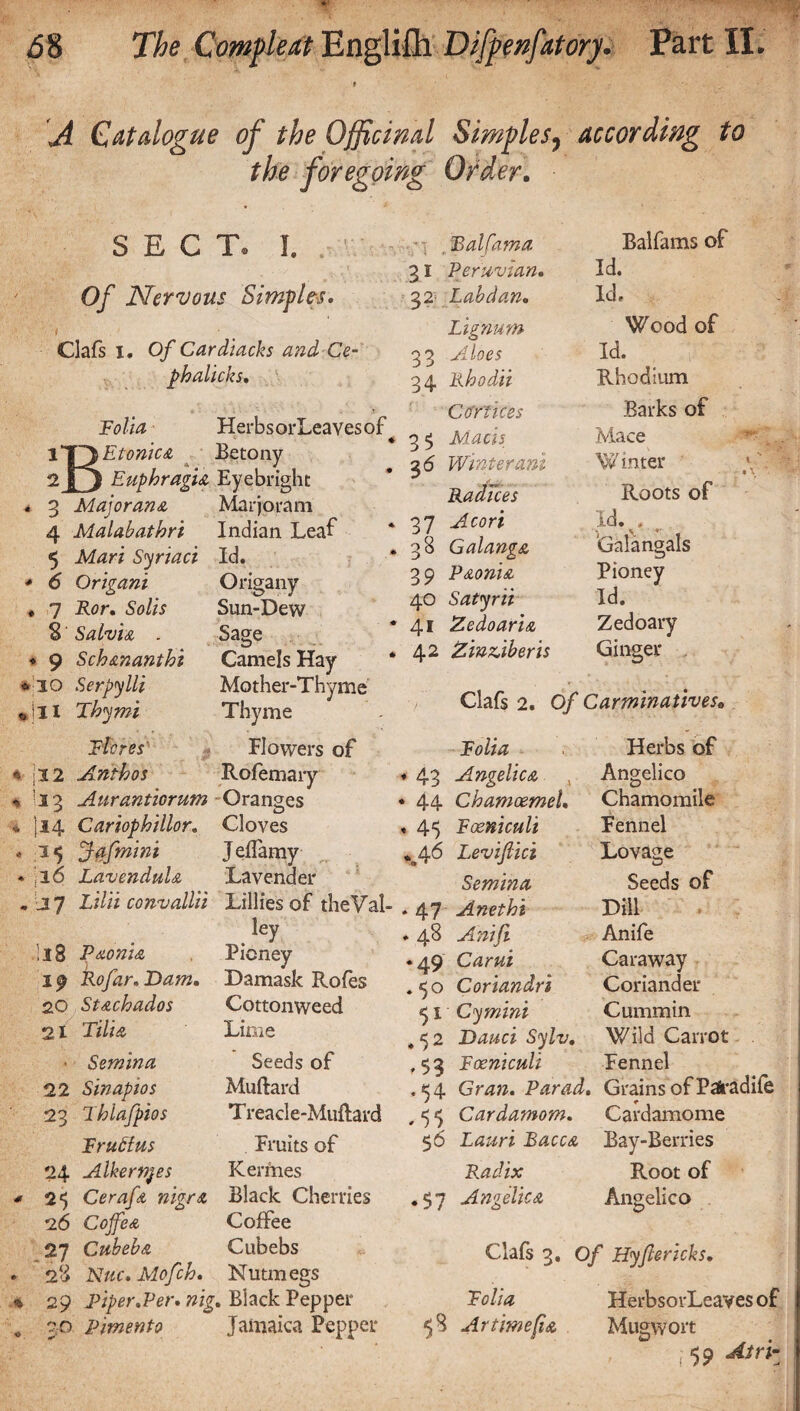 68 The Compleat Engliſh Diſpenſatory. Part II.
A Catalogue of the Officinal Simples, according to
the foregoing Order.
SECT. I.
Of Nervous Simples.
Claſs 1. Of Cardiacks and Ce-
phalicks.
Folia HerbsorLeavesof
1 BEtonicæ Betony
2 Euphragiæ Eyebright
3 Majoranæ Marjoram
4 Malabathri Indian Leaf
5 Mari Syriaci Id.
6 Origani Origany
7 Ror. Solis Sun-Dew
8 Salviæ Sage
9 Schænanthi Camels Hay
10 Serpylli Mother-Thyme
11 Thymi Thyme
Flores Flowers of
12 Anthos Roſemary
13 Aurantiorum Oranges
14 Cariophillor. Cloves
15 Jaſmini Jeſſamy
16 Lavendulæ Lavender
17 Lilii convallii Lillies of theVal-
ley
18 Pæoniæ Pioney
19 Roſar. Dam. Damask Roſes
20 Stæchados Cottonweed
21 Tiliæ Lime
Semina Seeds of
22 Sinapios Muſtard
23 Thlaſpios Treacle-Muſtard
Fructus Fruits of
24 Alkermes Kermes
25 Ceraſæ nigræ Black Cherries
26 Coffeæ Coffee
27 Cubebæ Cubebs
28 Nuc. Moſch. Nutmegs
29 Piper.Per. nig. Black Pepper
30 Pimento Jamaica Pepper
Balſama Balſams of
31 Peruvian. Id.
32 Labdan. Id.
Lignum Wood of
33 Aloes Id.
34 Rhodii Rhodium
Cortices Barks of
35 Macis Mace
36 Winterani Winter
Radices Roots of
37 Acori Id.
38 Galangæ Galangals
39 Pæoniæ Pioney
40 Satyrii Id.
41 Zedoariæ Zedoary
42 Zinziberis Ginger
Claſs 2. Of Carminatives.
Folia Herbs of
43 Angelicæ Angelico
44 Chamœmel. Chamomile
45 Fœniculi Fennel
46 Leviſtici Lovage
Semina Seeds of
47 Anethi Dill
48 Aniſi Aniſe
49 Carui Caraway
50 Coriandri Coriander
51 Cymini Cummin
52 Dauci Sylv. Wild Carrot
53 Fœniculi Fennel
54 Gran. Parad. Grains of Paradiſe
55 Cardamom. Cardamome
56 Lauri Baccæ Bay-Berries
Radix Root of
57 Angelicæ Angelico
Claſs 3. Of Hyſtericks.
Folia HerbsorLeavesof
58 Artimeſiæ Mugwort
59 Atri-